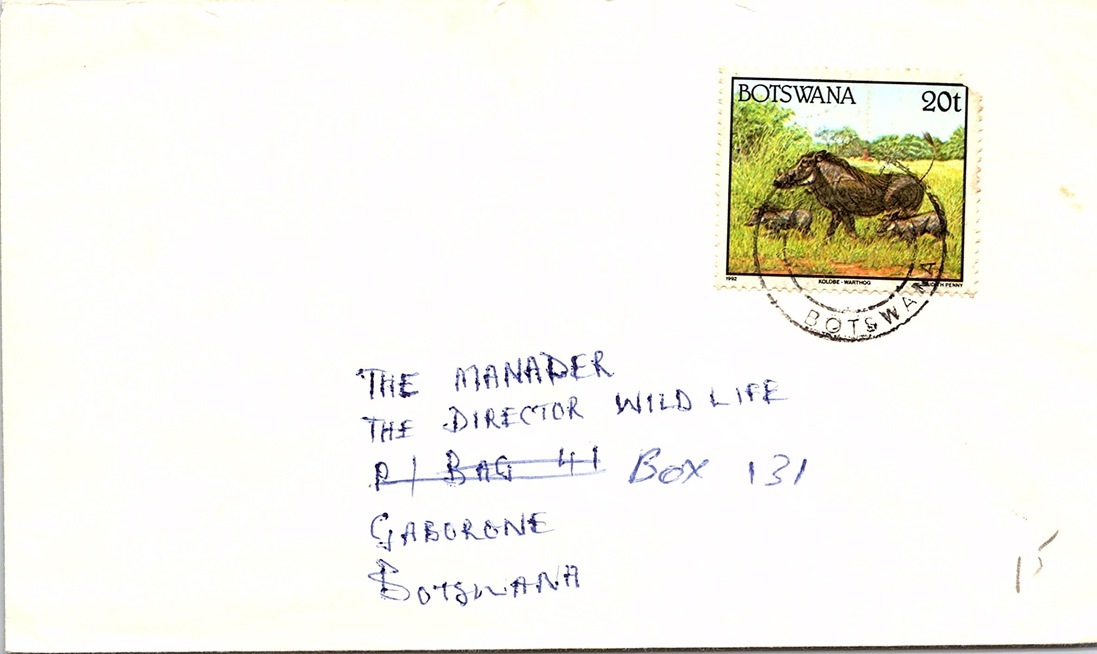 BOTSWANA 20t
1992 KOLOBE - WARTHOG PENNY
BOTSWANA
THE MANADER
THE DIRECTOR WILD LIFE
P / BAG 41 BOX 131
GABORONE
BOTSWANA
15